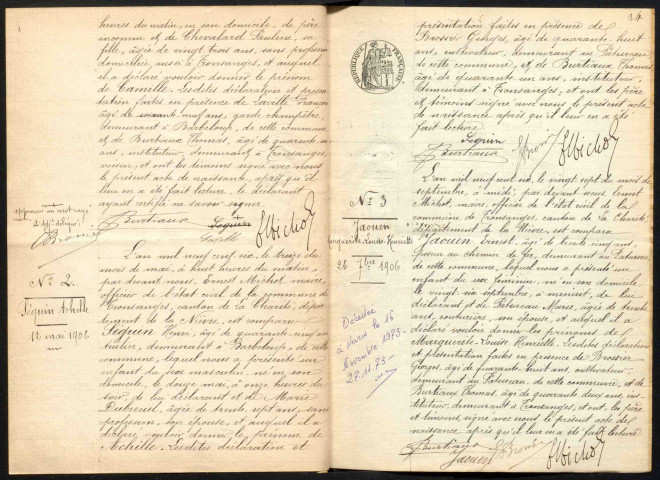 heures du matin, en son domicile, de père
inconnu et de Chevalard Pauline, sa
fille, âgée de vingt trois ans, sans profession
domiciliée aussi à Tronsanges, et auquel
il a déclaré vouloir donner le prénom
de Camille. Lesdites déclaration et présen-
tation faites en présence de Laville François
âgé de soixante neuf ans, garde champêtre,
demeurant à Barbeloup, de cette commune
et de Burtiaux Thomas, âgé de quarante un
ans, instituteur, demeurant à Tronsanges,
et ont les témoins signé avec nous
le présent acte de naissance, après qu'il
leur en a été fait lecture, le déclarant
ayant certifié ne savoir signer.
Burtiaux
EMichot
N° 2.
Séguin Achille
12 mai 1906
L'an mil neuf cent six, le treize du
mois de mai, à huit heures du matin,
par devant nous, Ernest Michot, maire,
officier de l'état civil de la commune de
Tronsanges, canton de La Charité, dépar-
tement de la Nièvre, est comparu
Séguin Henri, âgé de quarante neuf ans
demeurant à Barbeloup, de cette
commune, lequel nous a présenté un
enfant du sexe masculin, né en son
domicile, le douze mai, à onze heures du
soir, de lui déclarant et de Marie
Dubreuil, âgée de trente sept ans, sans
profession, son épouse, et auquel il a
déclaré vouloir donner le prénom de
Achille. Lesdites déclaration et
24
présentation faites en présence de
Brossier Georges, âgé de quarante huit
ans, cultivateur, demeurant au Patureau
de cette commune, et de Burtiaux Thomas,
âgé de quarante un ans, instituteur,
demeurant à Tronsanges, et ont, les père
et témoins signé avec nous le présent acte
de naissance après qu'il leur en a été
fait lecture.
Séguin
Burtiaux
EMichot
RÉPUBLIQUE FRANÇAISE
N° 3
Jaouen
Marguerite Louise Henriette
26 7bre 1906
Décédée
à Paris le 16
Novembre 1983
27.11.83
L'an mil neuf cent six, le vingt sept du mois de
septembre, à midi, par devant nous, Ernest
Michot, maire, officier de l'état civil de la
commune de Tronsanges, canton de La Charité,
département de la Nièvre, est comparu
Jaouen Ernest, âgé de trente cinq ans,
au chemin de fer, demeurant au Patureau,
de cette commune, lequel nous a présenté un
enfant du sexe féminin, né en son domicile,
le vingt six septembre, à minuit, de lui
déclarant et de Patureau Marie, âgée de trente
ans, couturière, son épouse, et auquel il a
déclaré vouloir donner les prénoms de
Marguerite Louise Henriette. Lesdites déclaration
et présentation faites en présence de Brossier
Georges, âgé de quarante huit ans, cultivateur,
demeurant au Patureau, de cette commune, et de
Burtiaux Thomas, âgé de quarante deux ans, ins-
tituteur, demeurant à Tronsanges, et ont, les père
et témoins, signé avec nous le présent acte de
naissance après qu'il leur en a été fait lecture.
Burtiaux
Jaouen
EMichot